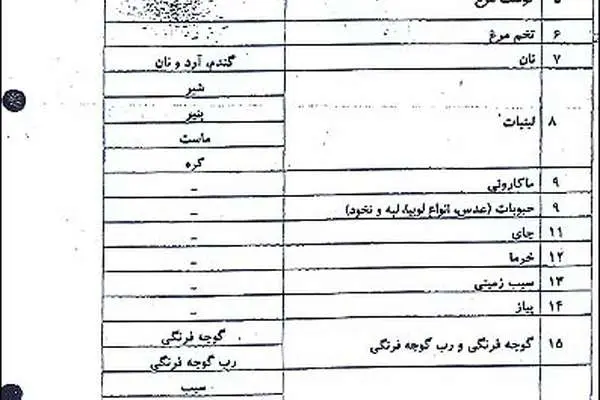 ۵ گوشت مرغ
۶ تخم مرغ
۷ نان گندم، آرد و نان
۸ لبنیات
شیر
پنیر
ماست
کره
۹ ماکارونی -
۹ حبوبات (عدس، انواع لوبیا، لپه و نخود) -
۱۱ چای -
۱۲ خرما -
۱۳ سیب زمینی -
۱۴ پیاز -
۱۵ گوجه فرنگی و رب گوجه فرنگی
گوجه فرنگی
رب گوجه فرنگی
سیب